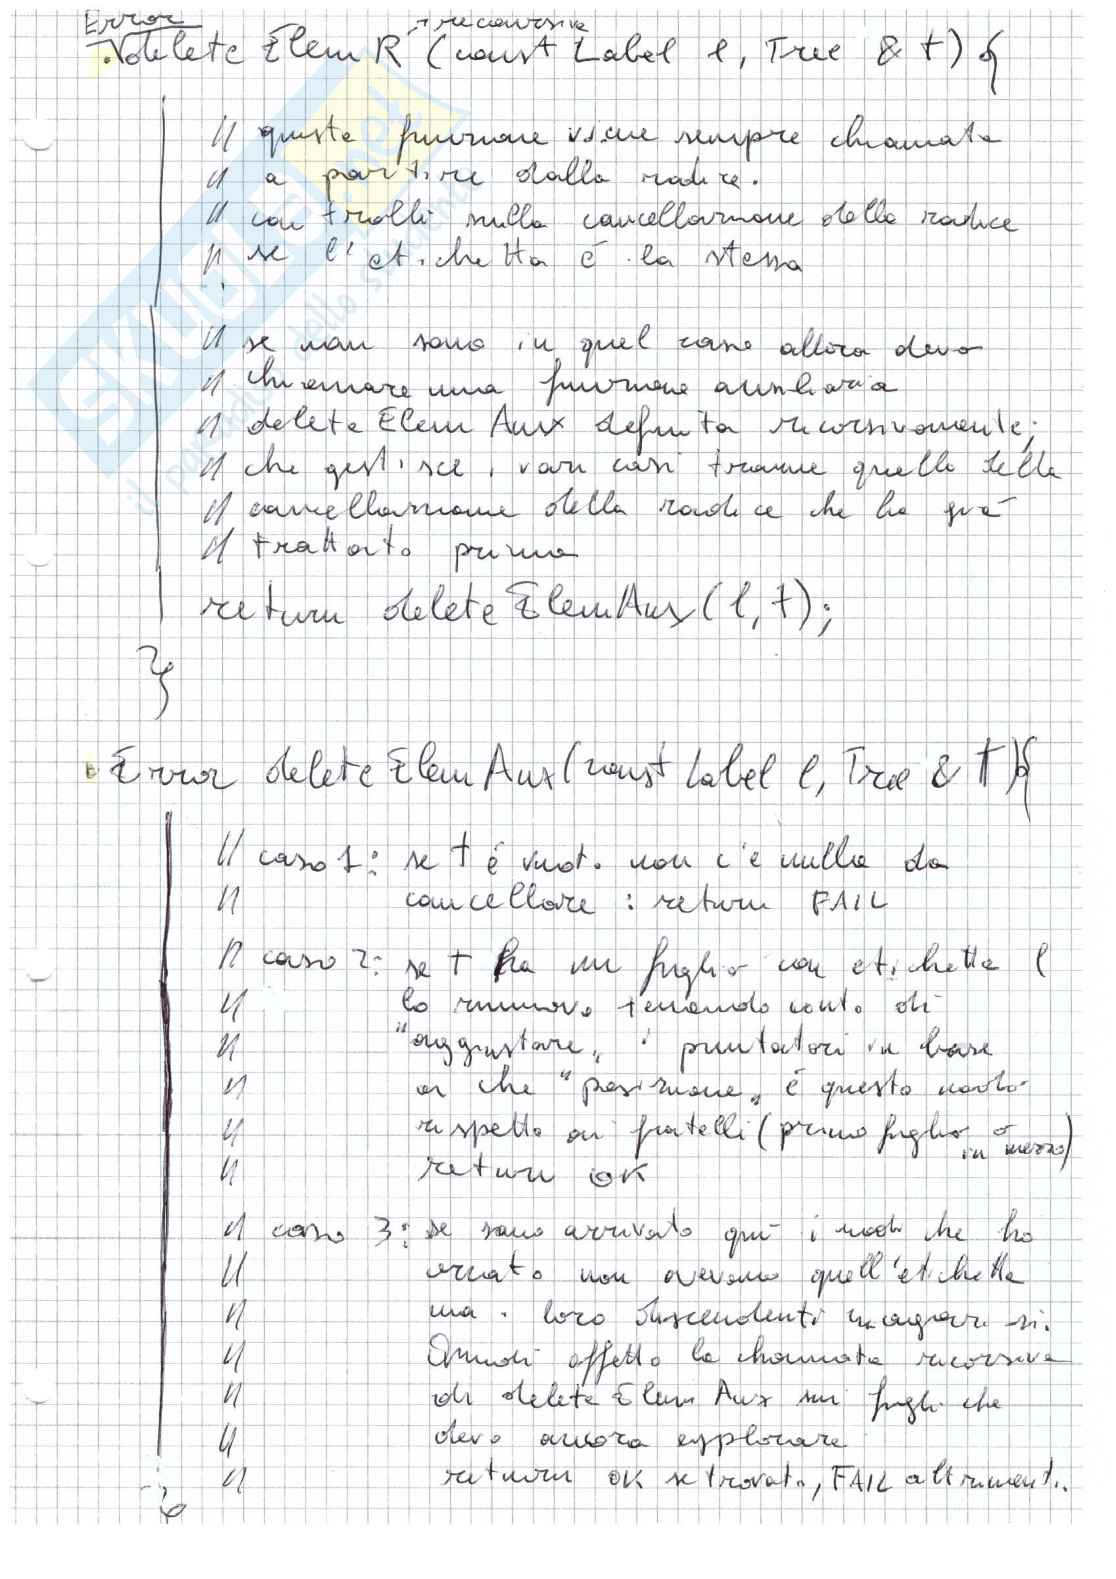 Error → recoursive
deleteElemR (const Label l, Tree & t) {
// questa funzione viene sempre chiamata
// a partire dalla radice.
// controlli sulla cancellazione della radice
// se l'etichetta é la stessa
// se non sono in quel caso allora devo
// chiamare una funzione ausiliaria
// deleteElemAux definita ricorsivamente;
// che gestisce i vari casi tranne quello della
// cancellazione della radice che ho già
// trattato prima
return deleteElemAux(l,t);
}
Error deleteElemAux(const Label l, Tree & t){
// caso 1: se t é vuoto non c'è nulla da
// cancellare : return FAIL
// caso 2: se t ha un figlio con etichetta l
// lo rimuovo tenendo conto di
// "aggiustare" i puntatori in base
// a che "posizione" é questo nodo
// rispetto ai fratelli (primo figlio o in mezzo)
// return OK
// caso 3: se sono arrivato qui i nodi che ho
// visitato non avevano quell'etichetta
// ma i loro discendenti magari si.
// Quindi effetto la chiamata ricorsiva
// di deleteElemAux sui figli che
// devo ancora esplorare
// return OK se trovato, FAIL altrimenti.
}
SKUOLA.net
il portale dello studente